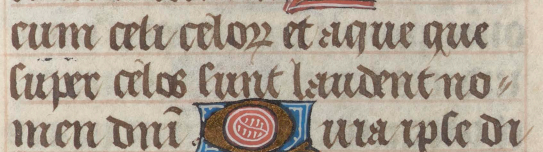 eum celi celoꝝ et aque que
super celos sunt laudent no⸗
men dnī Quia ipse di